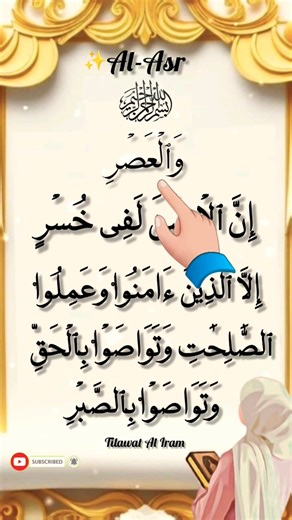 Al-Asr
بسم الله الرحمن الرحيم
وَٱلْعَصْرِ
إِنَّ لَفِى خُسْرٍ
إِلَّا ٱلَّذِينَ ءَامَنُوا۟ وَعَمِلُوا۟
ٱلصَّٰلِحَٰتِ وَتَوَاصَوْا۟ بِٱلْحَقِّ
وَتَوَاصَوْا۟ بِٱلصَّبْرِ
Tilawat Al Iram
SUBSCRIBED